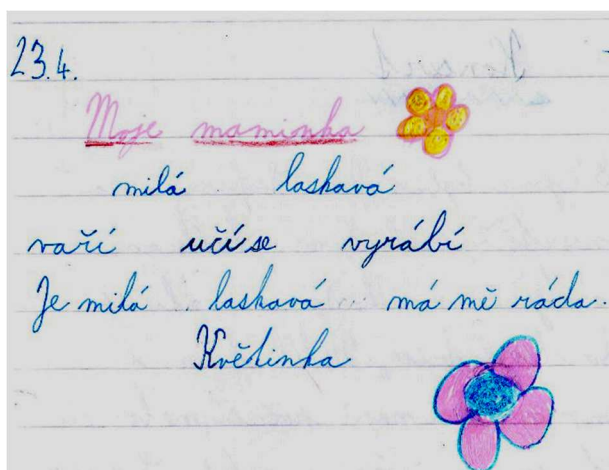 23.4.
Moje maminka
milá laskavá
vaří učí se vyrábí
Je milá laskavá má mě ráda.
Květinka